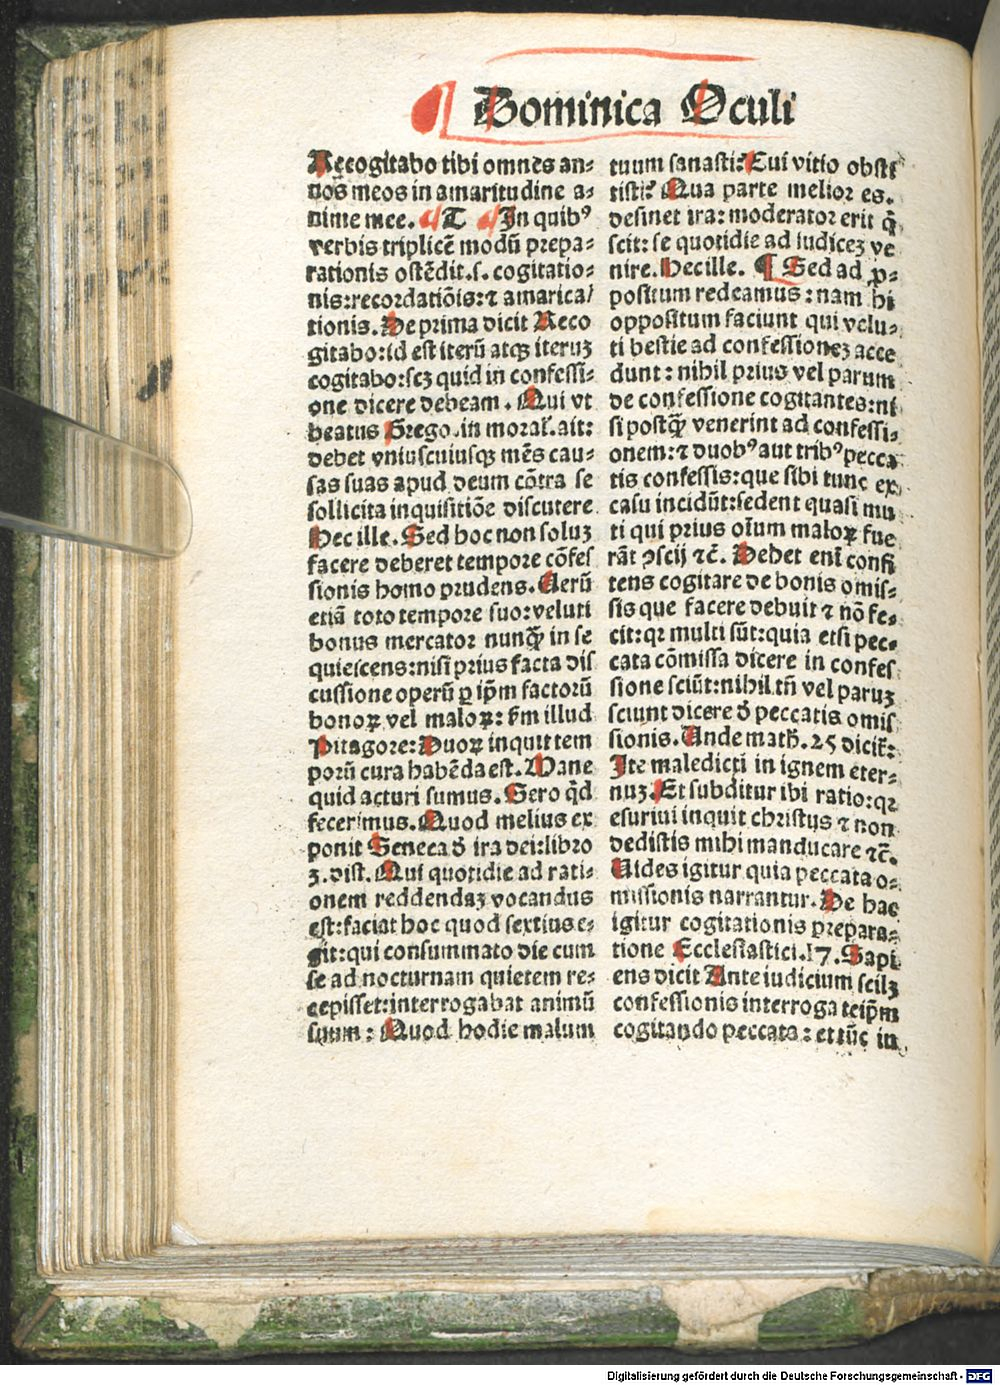 Dominica Oculi
Recogitabo tibi omnes an-
nos meos in amaritudine a-
nime mee. ¶ T ¶ In quibꝰ
verbis triplicē modū prepa-
rationis ostēdit.s. cogitatio-
nis:recordatiōis:⁊ amarica/
tionis. De prima dicit Reco
gitabo:id est iterū atqꝫ iteruꝫ
cogitabo:scꝫ quid in confessi-
one dicere debeam. Qui vt
beatus Grego.in moral̕.ait:
debet vniuscuiusqꝫ mēs cau-
sas suas apud deum cōtra se
sollicita inquisitiōe discutere
Hec ille. Sed hoc non soluꝫ
facere deberet tempore cōfes
sionis homo prudens. Uerū
etiā toto tempore suo:veluti
bonus mercator nunq̄ꝫ in se
quiescens:nisi prius facta dis
cussione operū ꝑ ip̄m factorū
bonoꝝ vel maloꝝ: ẜm illud
Pitagore:Duoꝝ inquit tem
porū cura habēda est. Mane
quid acturi sumus. Sero qd̄
fecerimus. Quod melius ex
ponit Seneca đ ira dei:libro
3.dist. Qui quotidie ad rati-
onem reddendaꝫ vocandus
est:faciat hoc quod sextius e-
git:qui consummato die cum
se ad nocturnam quietem re-
cepisset:interrogabat animū
suum: Quod hodie malum
tuum sanasti: Cui vitio obsti
tisti: Qua parte melior es.
desinet ira: moderator erit q̄
scit: se quotidie ad iudiceꝫ ve
nire. Hec ille. ¶ Sed ad ꝓ-
positum redeamus: nam hi
oppositum faciunt qui velu-
ti bestie ad confessioneꝫ acce
dunt: nihil prius vel parum
de confessione cogitantes:ni
si postq̄ꝫ venerint ad confessi-
onem:⁊ duobꝰ aut tribꝰ pecca
tis confessis:que sibi tunc ex
casu incidūt:sedent quasi mu
ti qui prius oīum maloꝝ fue
rāt ꝯscij ⁊c̄. Debet eni͞ confi
tens cogitare de bonis omis-
sis que facere debuit ⁊ nō fe-
cit:qꝛ multi sūt:quia etsi pec-
cata cōmissa dicere in confes
sione sciūt:nihil tn̄ vel paruꝫ
sciunt dicere đ peccatis omis
sionis. Unde math̄. 25 dicit̕:
Ite maledicti in ignem eter-
nuꝫ. Et subditur ibi ratio:qꝛ
esuriui inquit christus ⁊ non
dedistis mihi manducare ⁊c̄.
Uides igitur quia peccata o-
missionis narrantur. De hac
igitur cogitationis prepara-
tione Ecclesiastici.17. Sapi
ens dicit Ante iudicium scilꝫ
confessionis interroga teip̄m
cogitando peccata: et tūc in
Digitalisierung gefördert durch die Deutsche Forschungsgemeinschaft - DFG